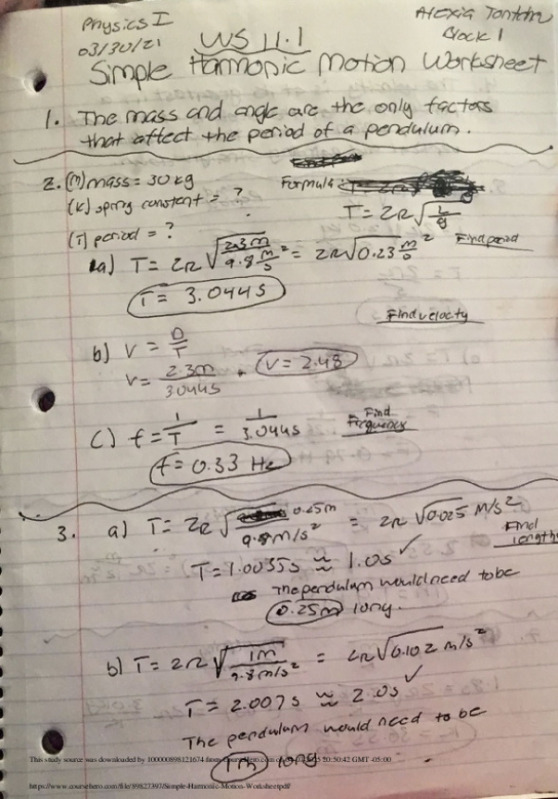 Physics I
03/30/21
Block 1
WS 11.1
Simple Harmonic Motion Worksheet
1. The mass and angle are the only factors
that affect the period of a pendulum.
2. (m) mass = 30 kg
Formula
(k) spring constant = ?
T = 2π√(L/g)
(T) period = ?
a) T = 2π√(2.3m/9.8 m/s²) = 2π√0.23 m/s²
Find period
T = 3.044 s
Find velocity
b) V = D/T
V = 2.3m/3.044s
V = 2.48
c) f = 1/T = 1/3.044s
Find Frequency
f = 0.33 Hz
3. a) T = 2π√(0.25m/9.8 m/s²) = 2π√0.025 m/s²
Find length
T = 1.0035s ≈ 1.0s ✓
The pendulum would need to be
0.25m long.
b) T = 2π√(1m/9.8m/s²) = 2π√0.102 m/s²
T = 2.007s ≈ 2.0s ✓
The pendulum would need to be
1m long
This study source was downloaded by 100000898121674 from CourseHero.com on 20:50:42 GMT -05:00
https://www.coursehero.com/file/89827397/Simple-Harmonic-Motion-Worksheetpdf/